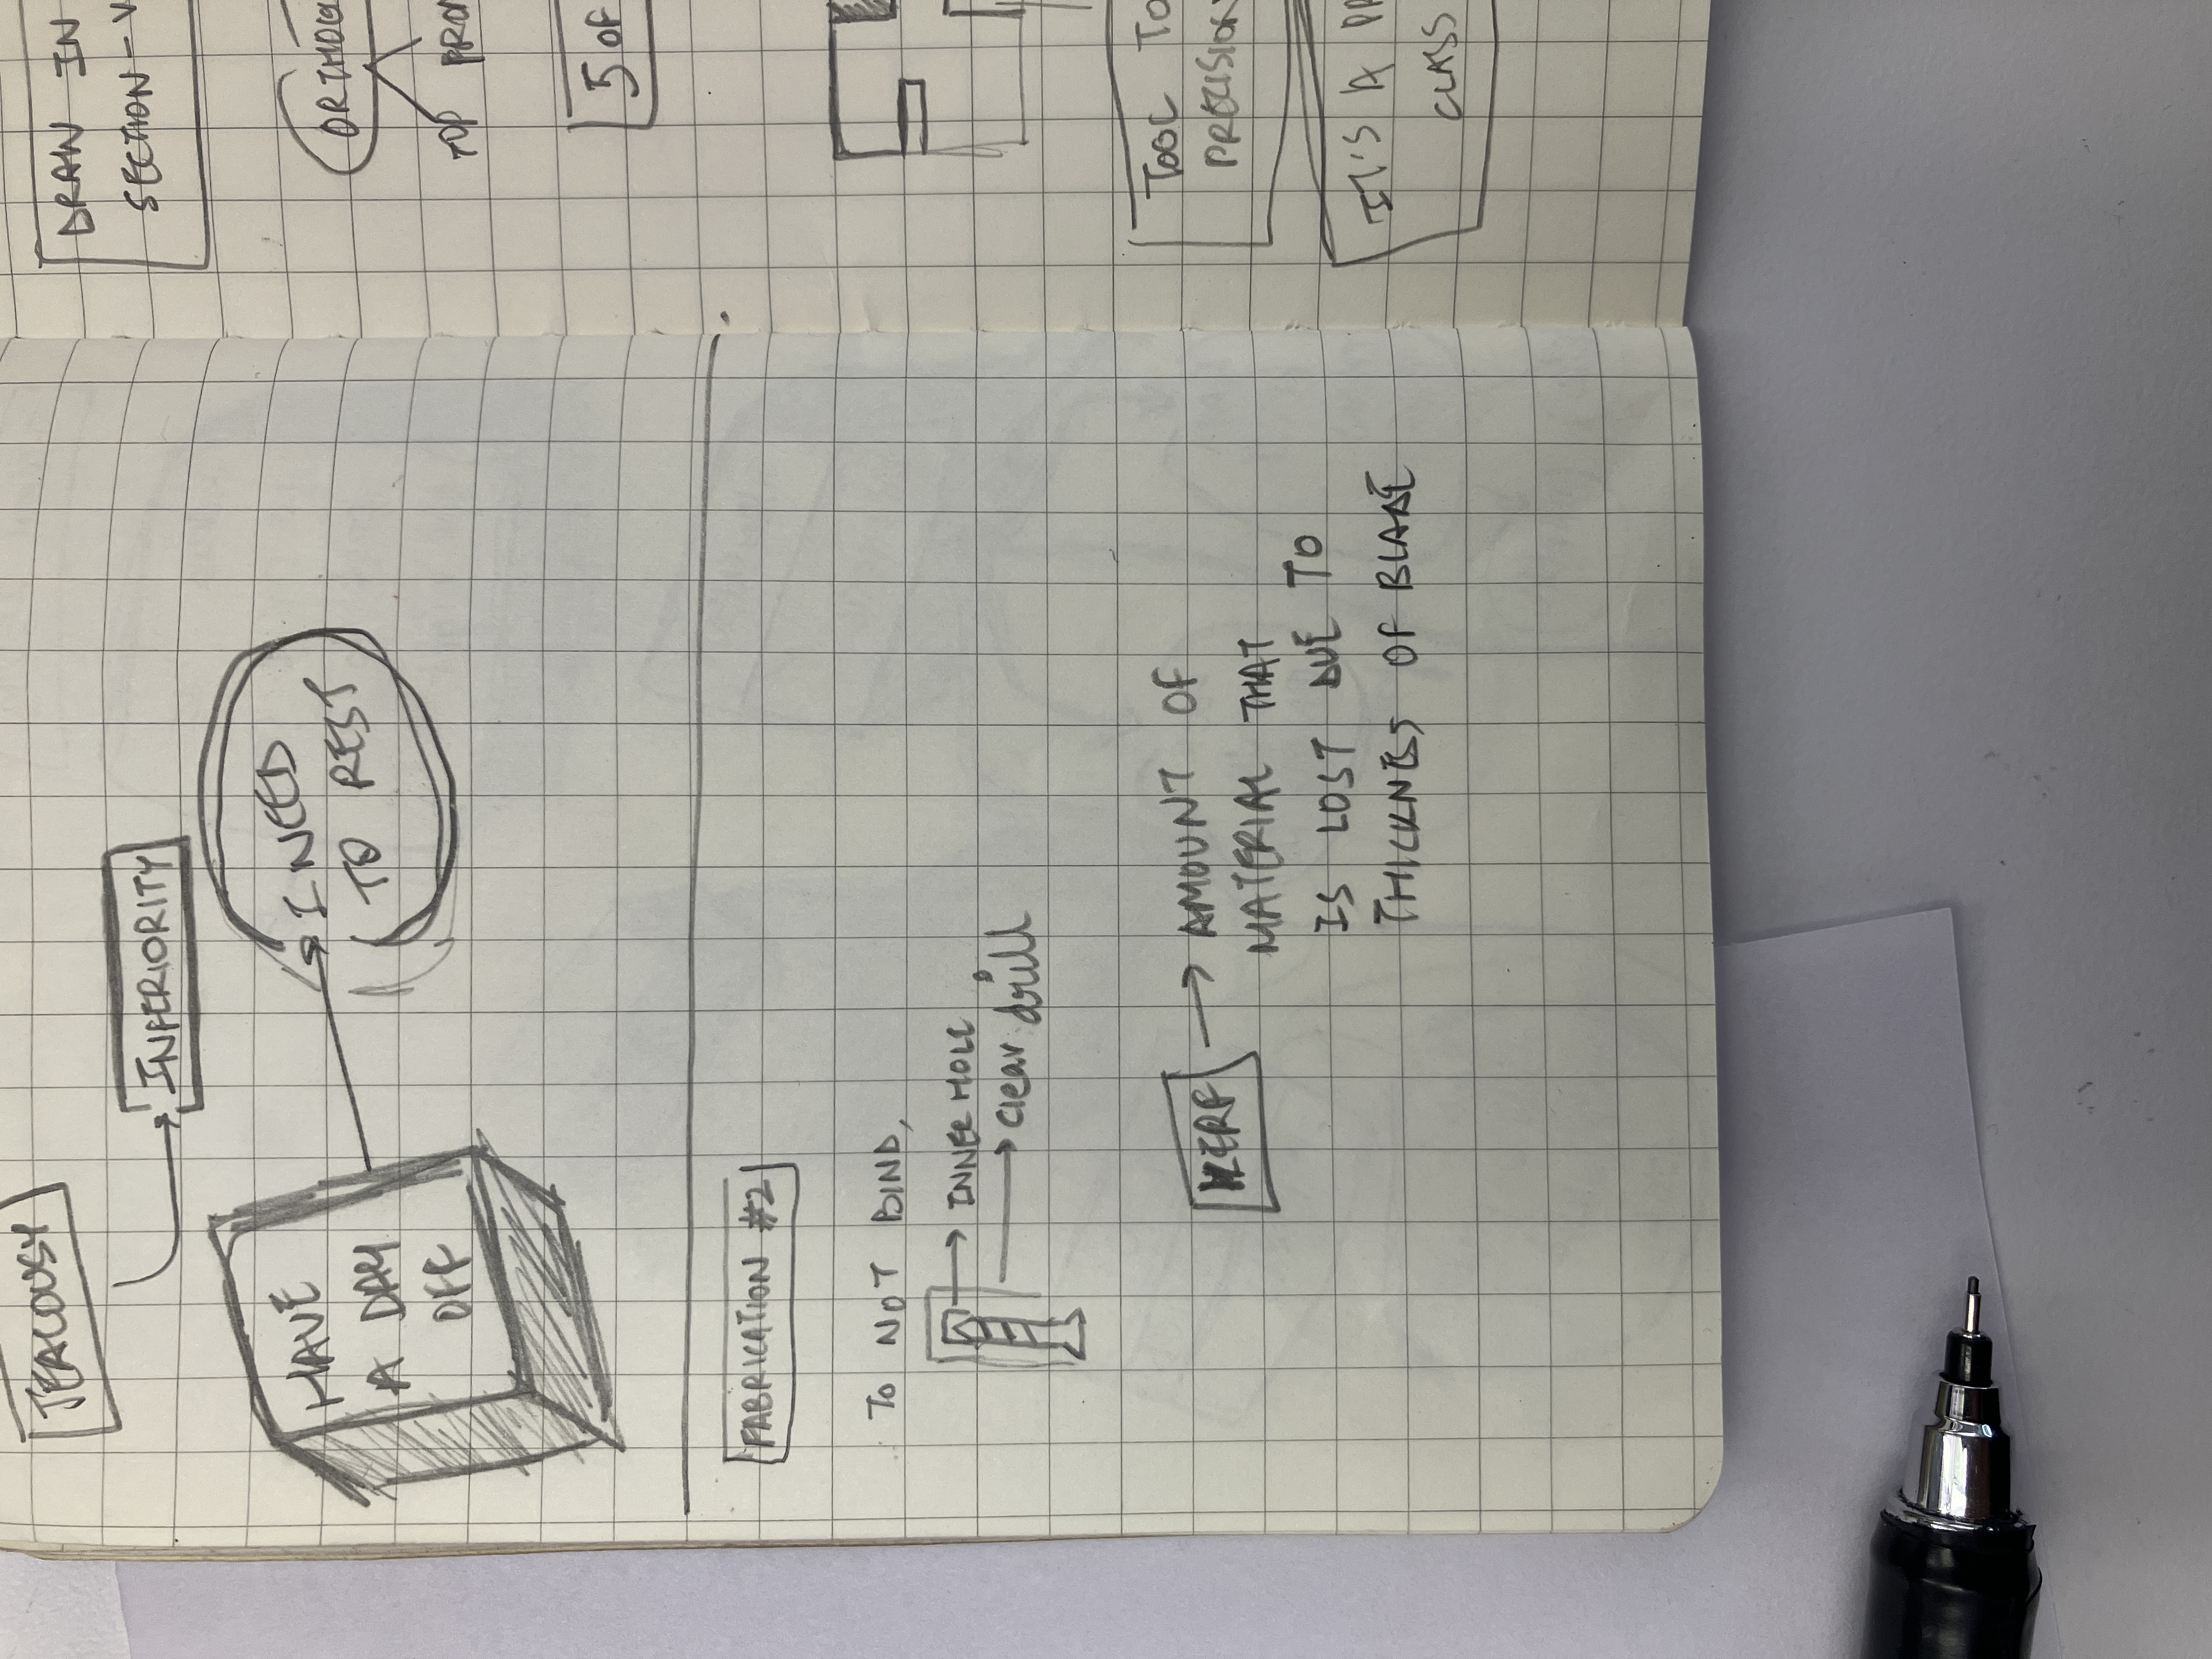 JEALOUSY
INFERIORITY
HAVE
A DAY
OFF
I NEED
TO REST
FABRICATION #2
TO NOT BIND,
INNER HOLE
clear drill
KERF
AMOUNT OF
MATERIAL THAT
IS LOST DUE TO
THICKNESS OF BLADE
DRAW IN
SECTION-V
ORTHOG
TOP
5 OF
TOOL TO
PRECISION
IT'S A
CLASS